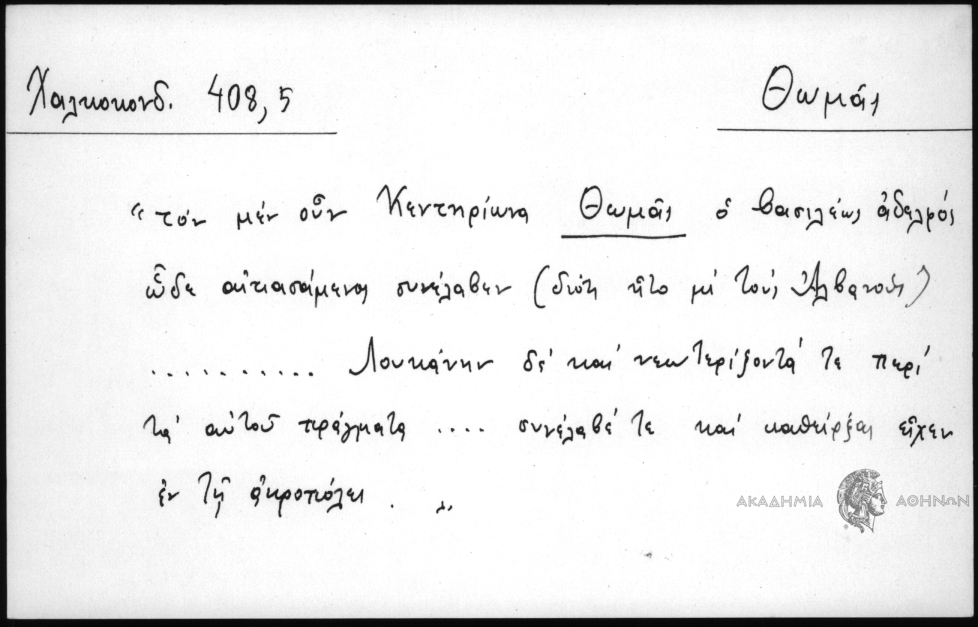 Χαλκοκονδ. 408,5
Θωμᾶς
"τόν μέν οὖν Κεντηρίωνα Θωμᾶς ὁ βασιλέως ἀδελφός
ὧδε αἰτιασάμενος συνέλαβεν (διότι ἦτο μέ τούς Ἀλβανούς)
.......... Λουκάνην δέ καί νεωτερίζοντά τε περί
τά αὐτοῦ πράγματα .... συνέλαβέ τε καί καθείρξας εἶχεν
ἐν τῇ ἀκροπόλει . .,
ΑΚΑΔΗΜΙΑ ΑΘΗΝΩΝ